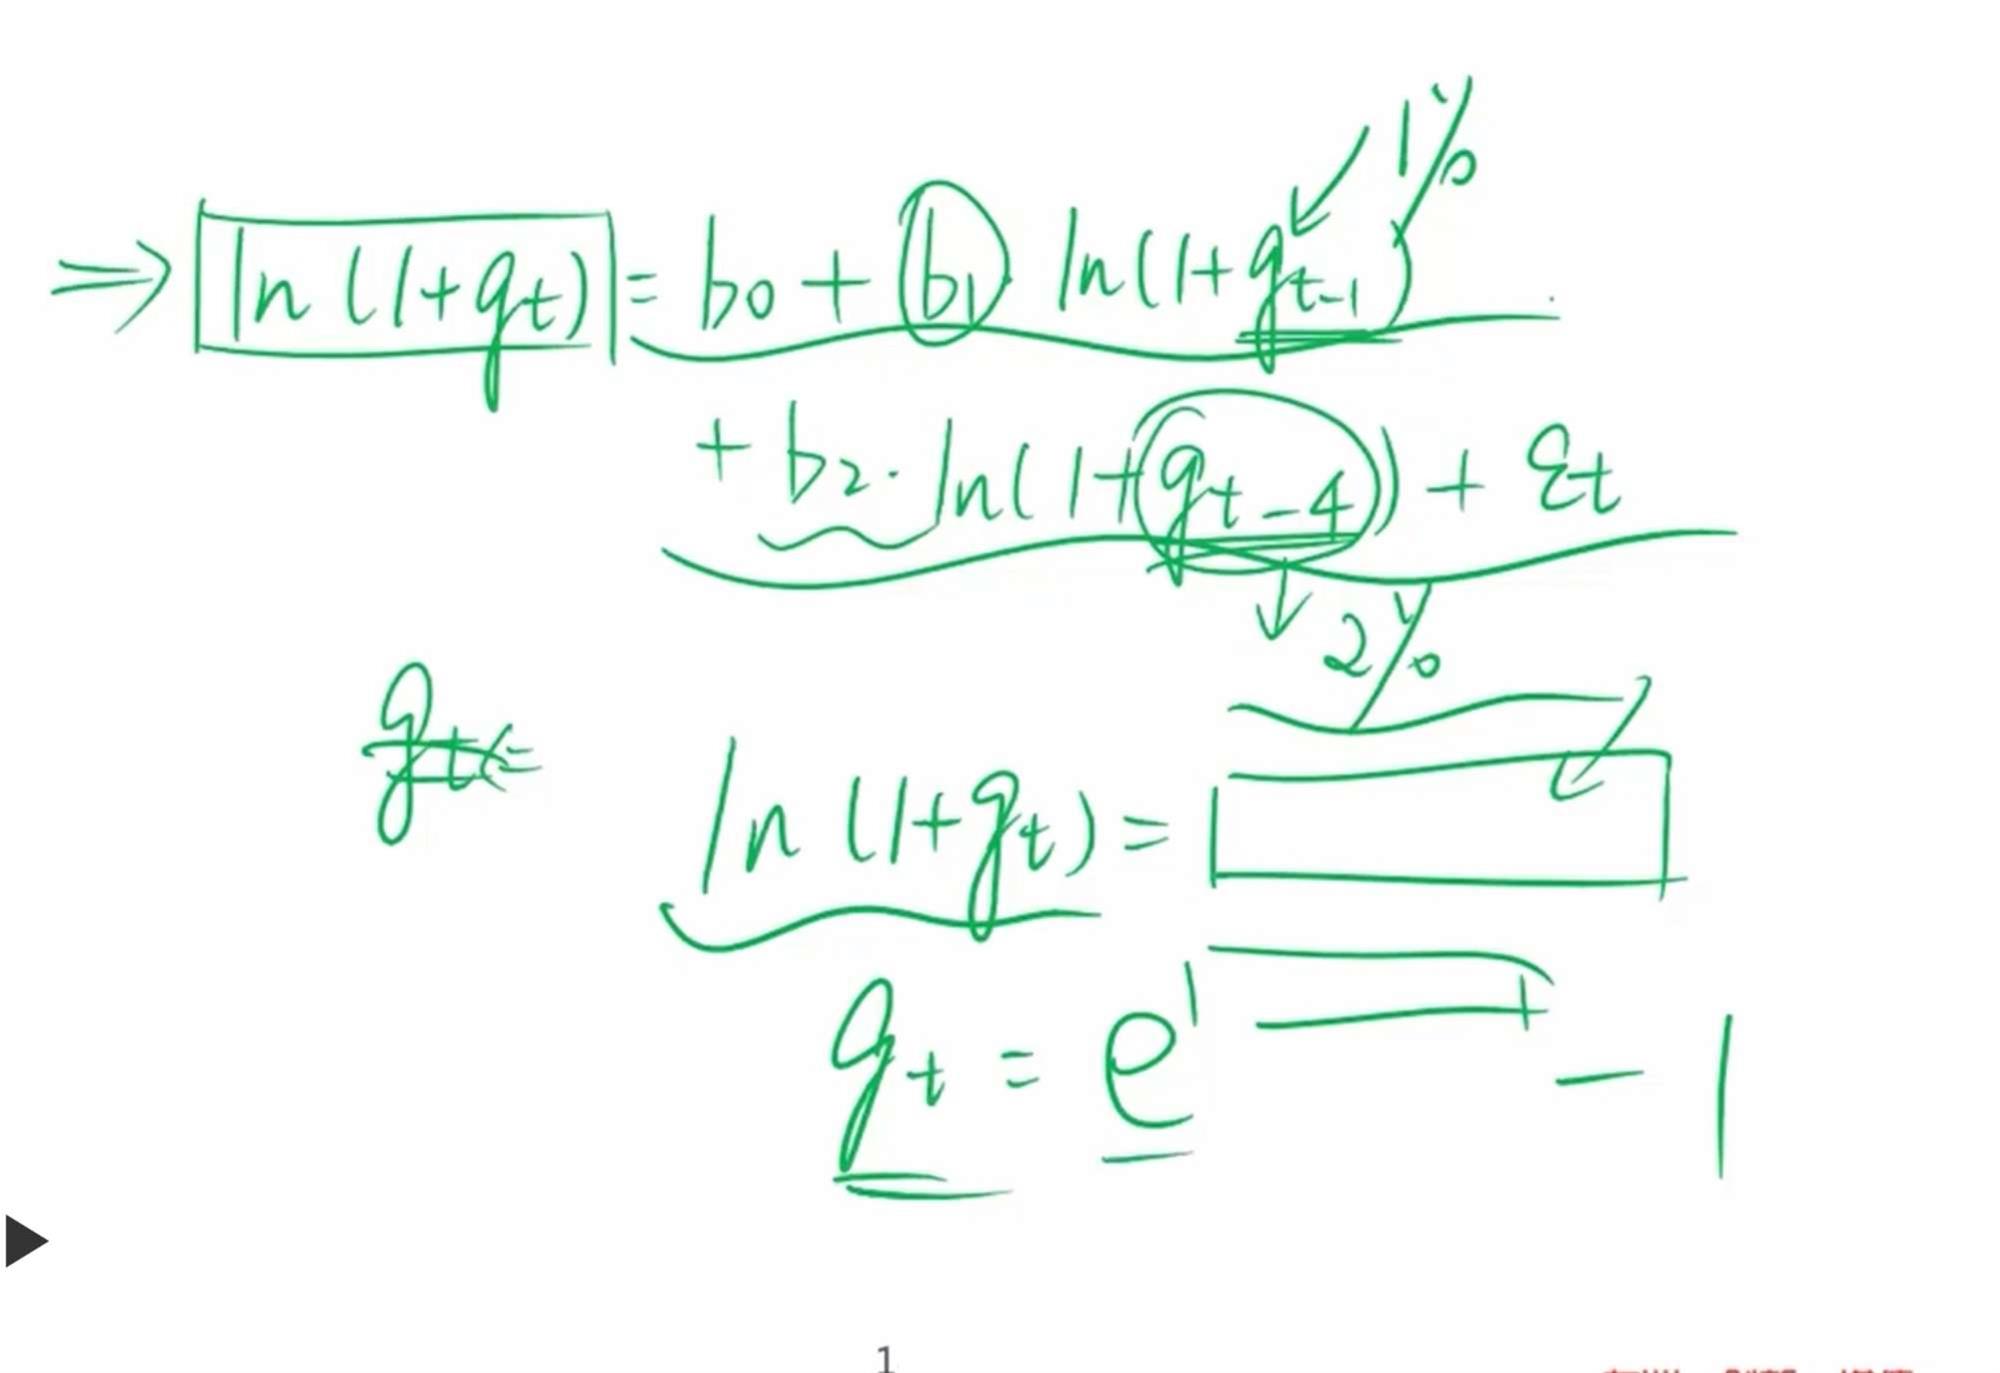 ⇒ ln(1+gt) = b0 + b1 ln(1+gt-1) 1%
+ b2·ln(1+gt-4) + εt
2%
gt=
ln(1+gt) =
gt = e - 1
1